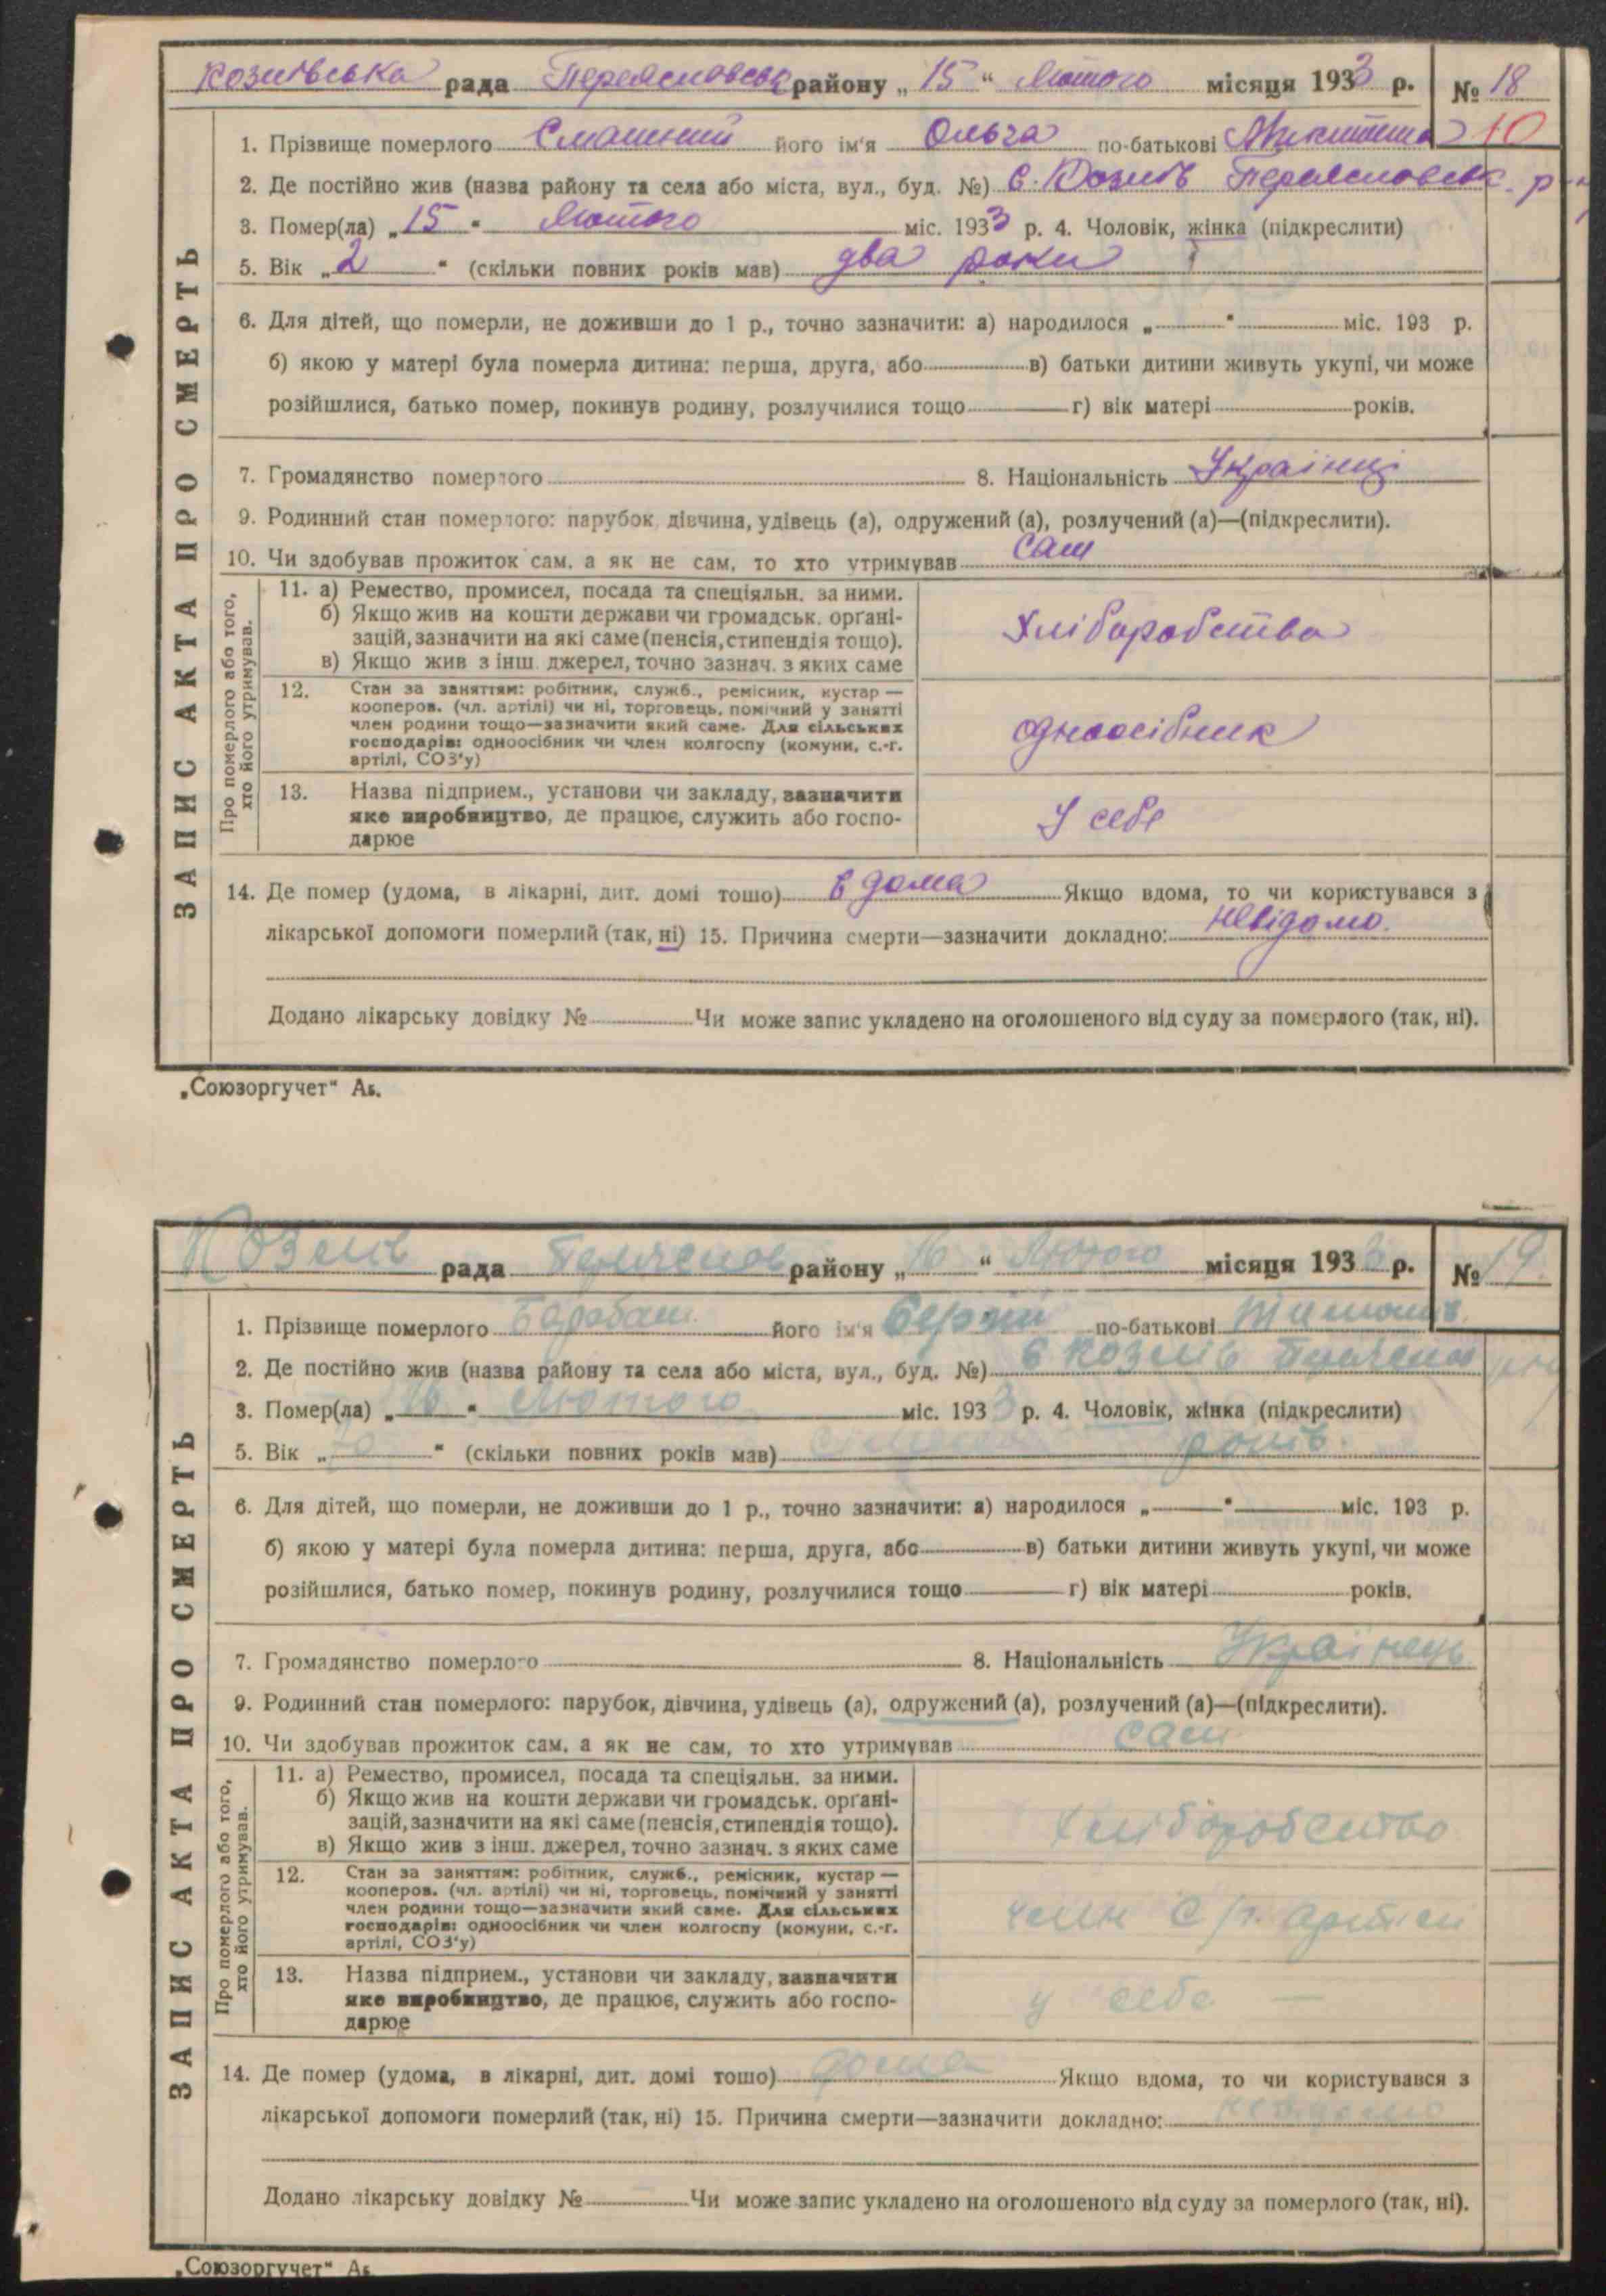 Козлівська рада Переяславськ району „15“ Лютого місяця 1933 р. № 18
1. Прізвище померлого його ім'я Ольга по-батькові Микитина 10
2. Де постійно жив (назва району та села або міста, вул., буд. №) С. Козлів Переясловськ. р-н
3. Помер(ла) „15“ Лютого міс. 1933 р. 4. Чоловік, жінка (підкреслити)
5. Вік „2“ (скільки повних років мав) два роки
6. Для дітей, що померли, не доживши до 1 р., точно зазначити: а) народилося „ “ міс. 193 р.
б) якою у матері була померла дитина: перша, друга, або в) батьки дитини живуть укупі, чи може
розійшлися, батько помер, покинув родину, розлучилися тощо г) вік матері років.
7. Громадянство померлого 8. Національність Українці
9. Родинний стан померлого: парубок, дівчина, удівець (а), одружений (а), розлучений (а)—(підкреслити).
10. Чи здобував прожиток сам, а як не сам, то хто утримував сам
ЗАПИС АКТА ПРО СМЕРТЬ
Про померлого або того, хто його утримував.
11. а) Ремество, промисел, посада та спеціяльн. за ними.
б) Якщо жив на кошти держави чи громадськ. орґані-
зацій, зазначити на які саме (пенсія, стипендія тощо).
в) Якщо жив з інш. джерел, точно зазнач. з яких саме
Хліборобства
12. Стан за заняттям: робітник, служб., ремісник, кустар —
кооперов. (чл. артілі) чи ні, торговець, помічний у занятті
член родини тощо—зазначити який саме. Для сільських
господарів: одноосібник чи член колгоспу (комуни, с.-г.
артілі, СОЗ'у)
одноосібник
13. Назва підприєм., установи чи закладу, зазначити
яке виробництво, де працює, служить або госпо-
дарює
У себе
14. Де помер (удома, в лікарні, дит. домі тощо) в дома Якщо вдома, то чи користувався з
лікарської допомоги померлий (так, ні) 15. Причина смерти—зазначити докладно: невідомо.
Додано лікарську довідку № Чи може запис укладено на оголошеного від суду за померлого (так, ні).
„Союзоргучет“ Аб.
Козлів рада Переяслов району „16“ Лютого місяця 1933 р. № 19
1. Прізвище померлого Барабаш його ім'я Сергій по-батькові
2. Де постійно жив (назва району та села або міста, вул., буд. №) С Козлів Переяслов р-ну
3. Помер(ла) „16“ Лютого міс. 1933 р. 4. Чоловік, жінка (підкреслити)
5. Вік „70“ (скільки повних років мав) років.
6. Для дітей, що померли, не доживши до 1 р., точно зазначити: а) народилося „ “ міс. 193 р.
б) якою у матері була померла дитина: перша, друга, або в) батьки дитини живуть укупі, чи може
розійшлися, батько помер, покинув родину, розлучилися тощо г) вік матері років.
7. Громадянство померлого 8. Національність Українець
9. Родинний стан померлого: парубок, дівчина, удівець (а), одружений (а), розлучений (а)—(підкреслити).
10. Чи здобував прожиток сам, а як не сам, то хто утримував сам
ЗАПИС АКТА ПРО СМЕРТЬ
Про померлого або того, хто його утримував.
11. а) Ремество, промисел, посада та спеціяльн. за ними.
б) Якщо жив на кошти держави чи громадськ. орґані-
зацій, зазначити на які саме (пенсія, стипендія тощо).
в) Якщо жив з інш. джерел, точно зазнач. з яких саме
Хліборобство
12. Стан за заняттям: робітник, служб., ремісник, кустар —
кооперов. (чл. артілі) чи ні, торговець, помічний у занятті
член родини тощо—зазначити який саме. Для сільських
господарів: одноосібник чи член колгоспу (комуни, с.-г.
артілі, СОЗ'у)
член с/г. артілі
13. Назва підприєм., установи чи закладу, зазначити
яке виробництво, де працює, служить або госпо-
дарює
у себе —
14. Де помер (удома, в лікарні, дит. домі тощо) дома Якщо вдома, то чи користувався з
лікарської допомоги померлий (так, ні) 15. Причина смерти—зазначити докладно: невідомо
Додано лікарську довідку № Чи може запис укладено на оголошеного від суду за померлого (так, ні).
„Союзоргучет“ Аб